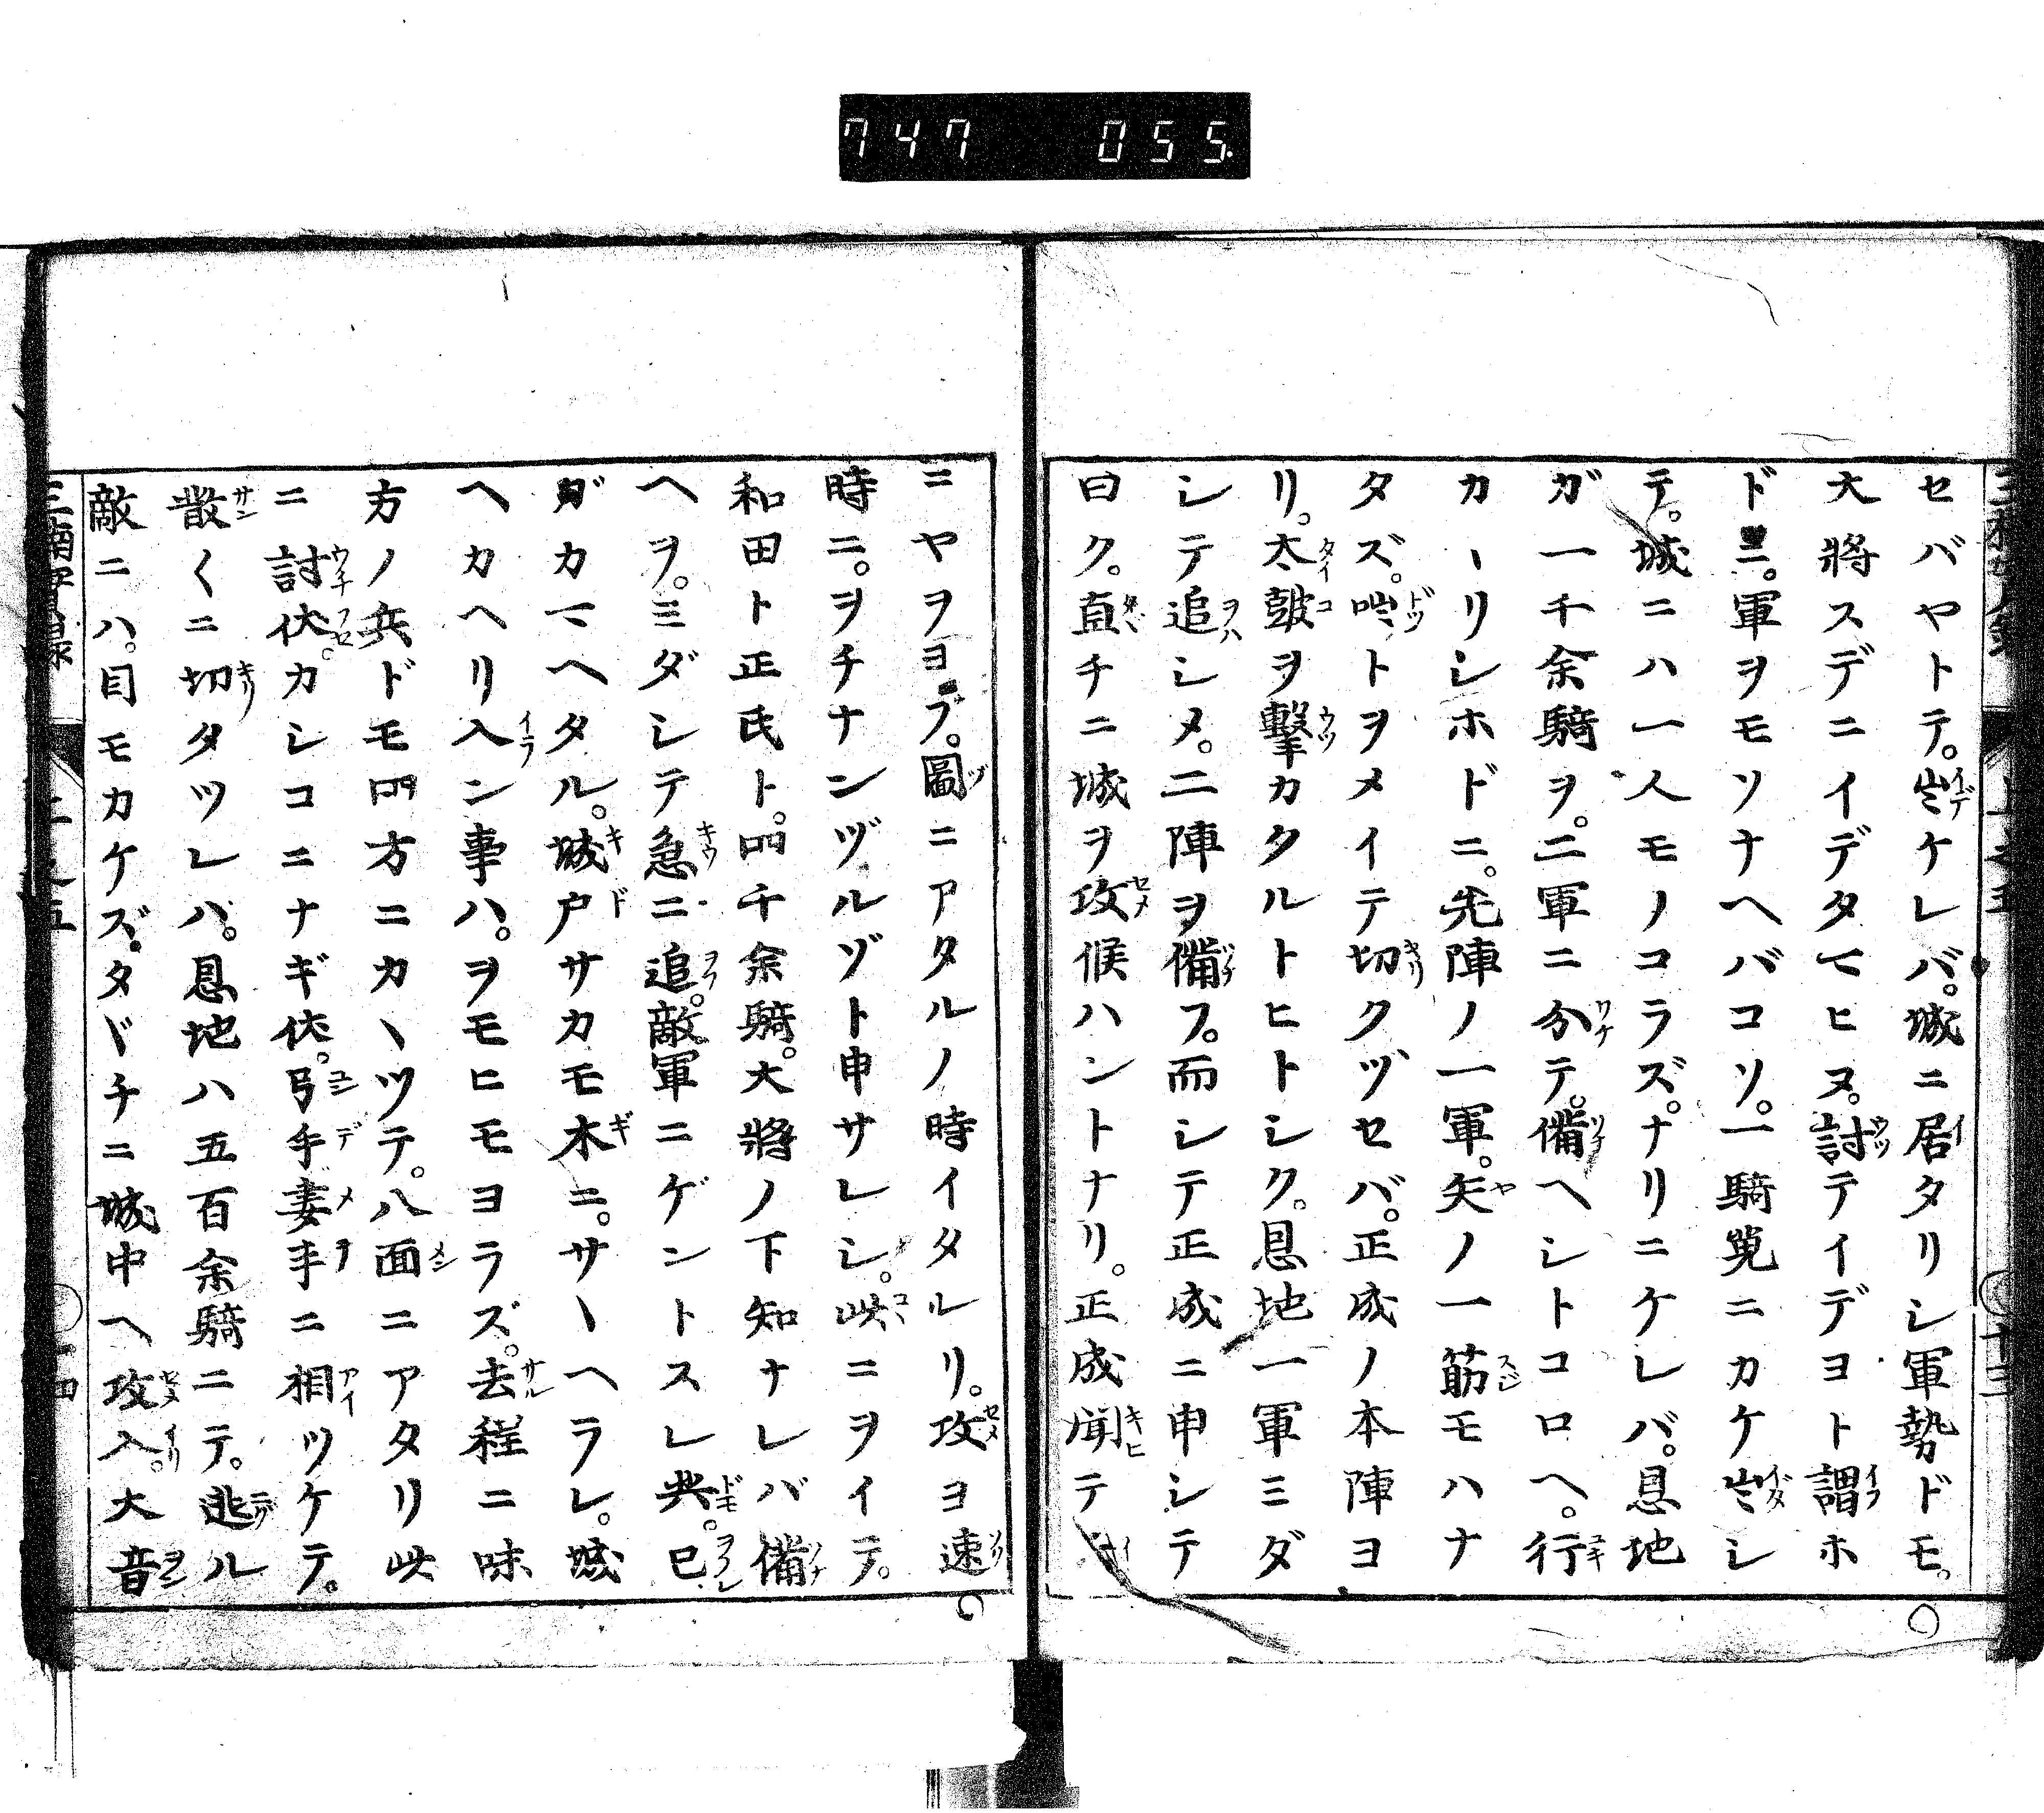 747 055
セバヤトテ。出ケレバ。城ニ居タリシ軍勢ドモ。
大將スデニイデタマヒヌ。討テイデヨト謂ホ
ドニ。軍ヲモソナヘバコソ。一騎寛ニカケ出シ
テ。城ニハ一人モノコラズ。ナリニケレバ。恩地
ガ一千余騎ヲ。二軍ニ分テ。備ヘシトコロヘ。行
カヽリシホドニ。先陣ノ一軍。矢ノ一筋モハナ
タズ。咄トヲメイテ切クヅセバ。正成ノ本陣ヨ
リ。太皷ヲ擊カタルトヒトシク。恩地一軍ミダ
シテ追シメ。二陣ヲ備フ。而シテ正成ニ申シテ
曰ク。直チニ城ヲ攻候ハントナリ。正成聞テ
ミヤヲヨブ。圖ニアタルノ時イタルリ。攻ヨ速
時ニ。ヲチナンヅルゾト申サレシ。此ニヲイテ。
和田ト正氏ト。四千余騎。大將ノ下知ナレバ備
ヘヲ。ミダシテ急ニ追。敵軍ニゲントスレ共。已
ガカマヘタル。城戸サカモ木ニ。サヽヘラレ。城
ヘカヘリ入ン事ハ。ヲモヒモヨラズ。去程ニ味
方ノ兵ドモ四方ニカヽツテ。八面ニアタリ此
ニ討伏。カシコニナギ伏。弓手妻手ニ相ツケテ。
散〱ニ切タツレハ。恩地ハ五百余騎ニテ。逃ル
敵ニハ。目モカケズ。タヾチニ城中ヘ攻入。大音